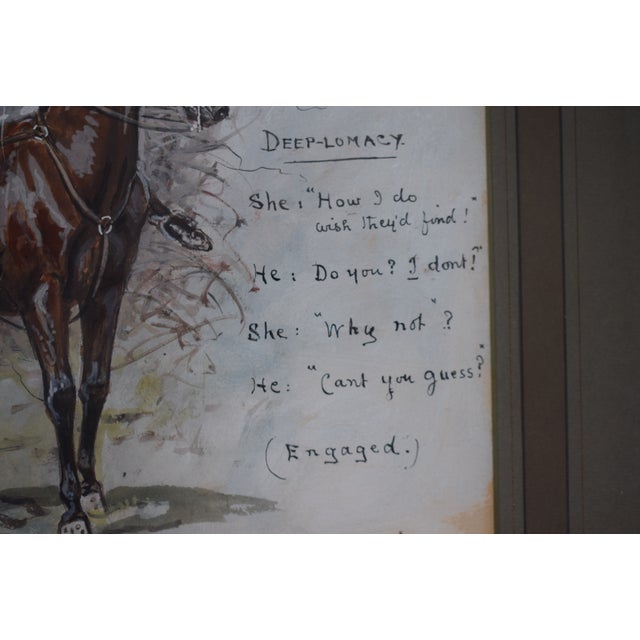 DEEP-LOMACY.
She: "How I do
wish they'd find!"
He: Do you? I dont!"
She: "Why not"?
He: "Cant you guess?"
(Engaged.)